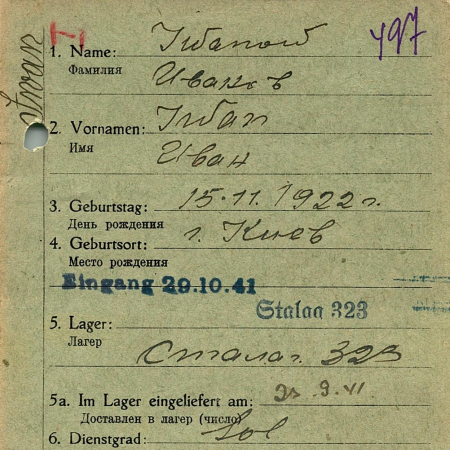 Iwan
497
1. Name: Iwanow
Фамилия Иванов
2. Vornamen: Iwan
Имя Иван
3. Geburtstag: 15.11.1922 г.
День рождения
4. Geburtsort: г. Киев
Место рождения
Eingang 29.10.41
Stalag 323
5. Lager:
Лагер Сталаг 323
5a. Im Lager eingeliefert am: 9.41
Доставлен в лагер (число)
6. Dienstgrad: Sol